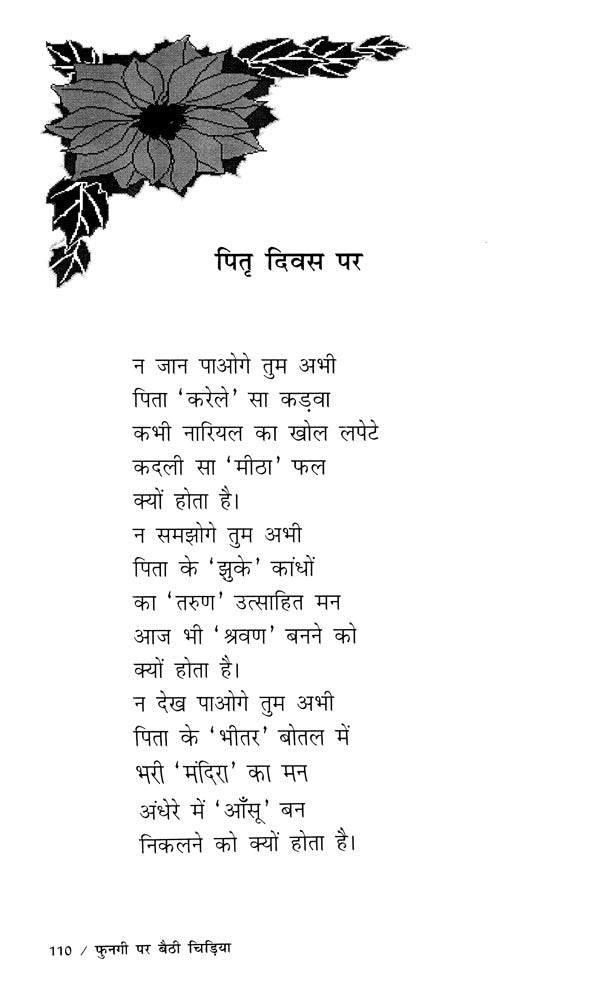 पितृ दिवस पर
न जान पाओगे तुम अभी
पिता ‘करेले’ सा कड़वा
कभी नारियल का खोल लपेटे
कदली सा ‘मीठा’ फल
क्यों होता है।
न समझोगे तुम अभी
पिता के ‘झुके’ कांधों
का ‘तरुण’ उत्साहित मन
आज भी ‘श्रवण’ बनने को
क्यों होता है।
न देख पाओगे तुम अभी
पिता के ‘भीतर’ बोतल में
भरी ‘मंदिरा’ का मन
अंधेरे में ‘आँसू’ बन
निकलने को क्यों होता है।
110 / फुनगी पर बैठी चिड़िया